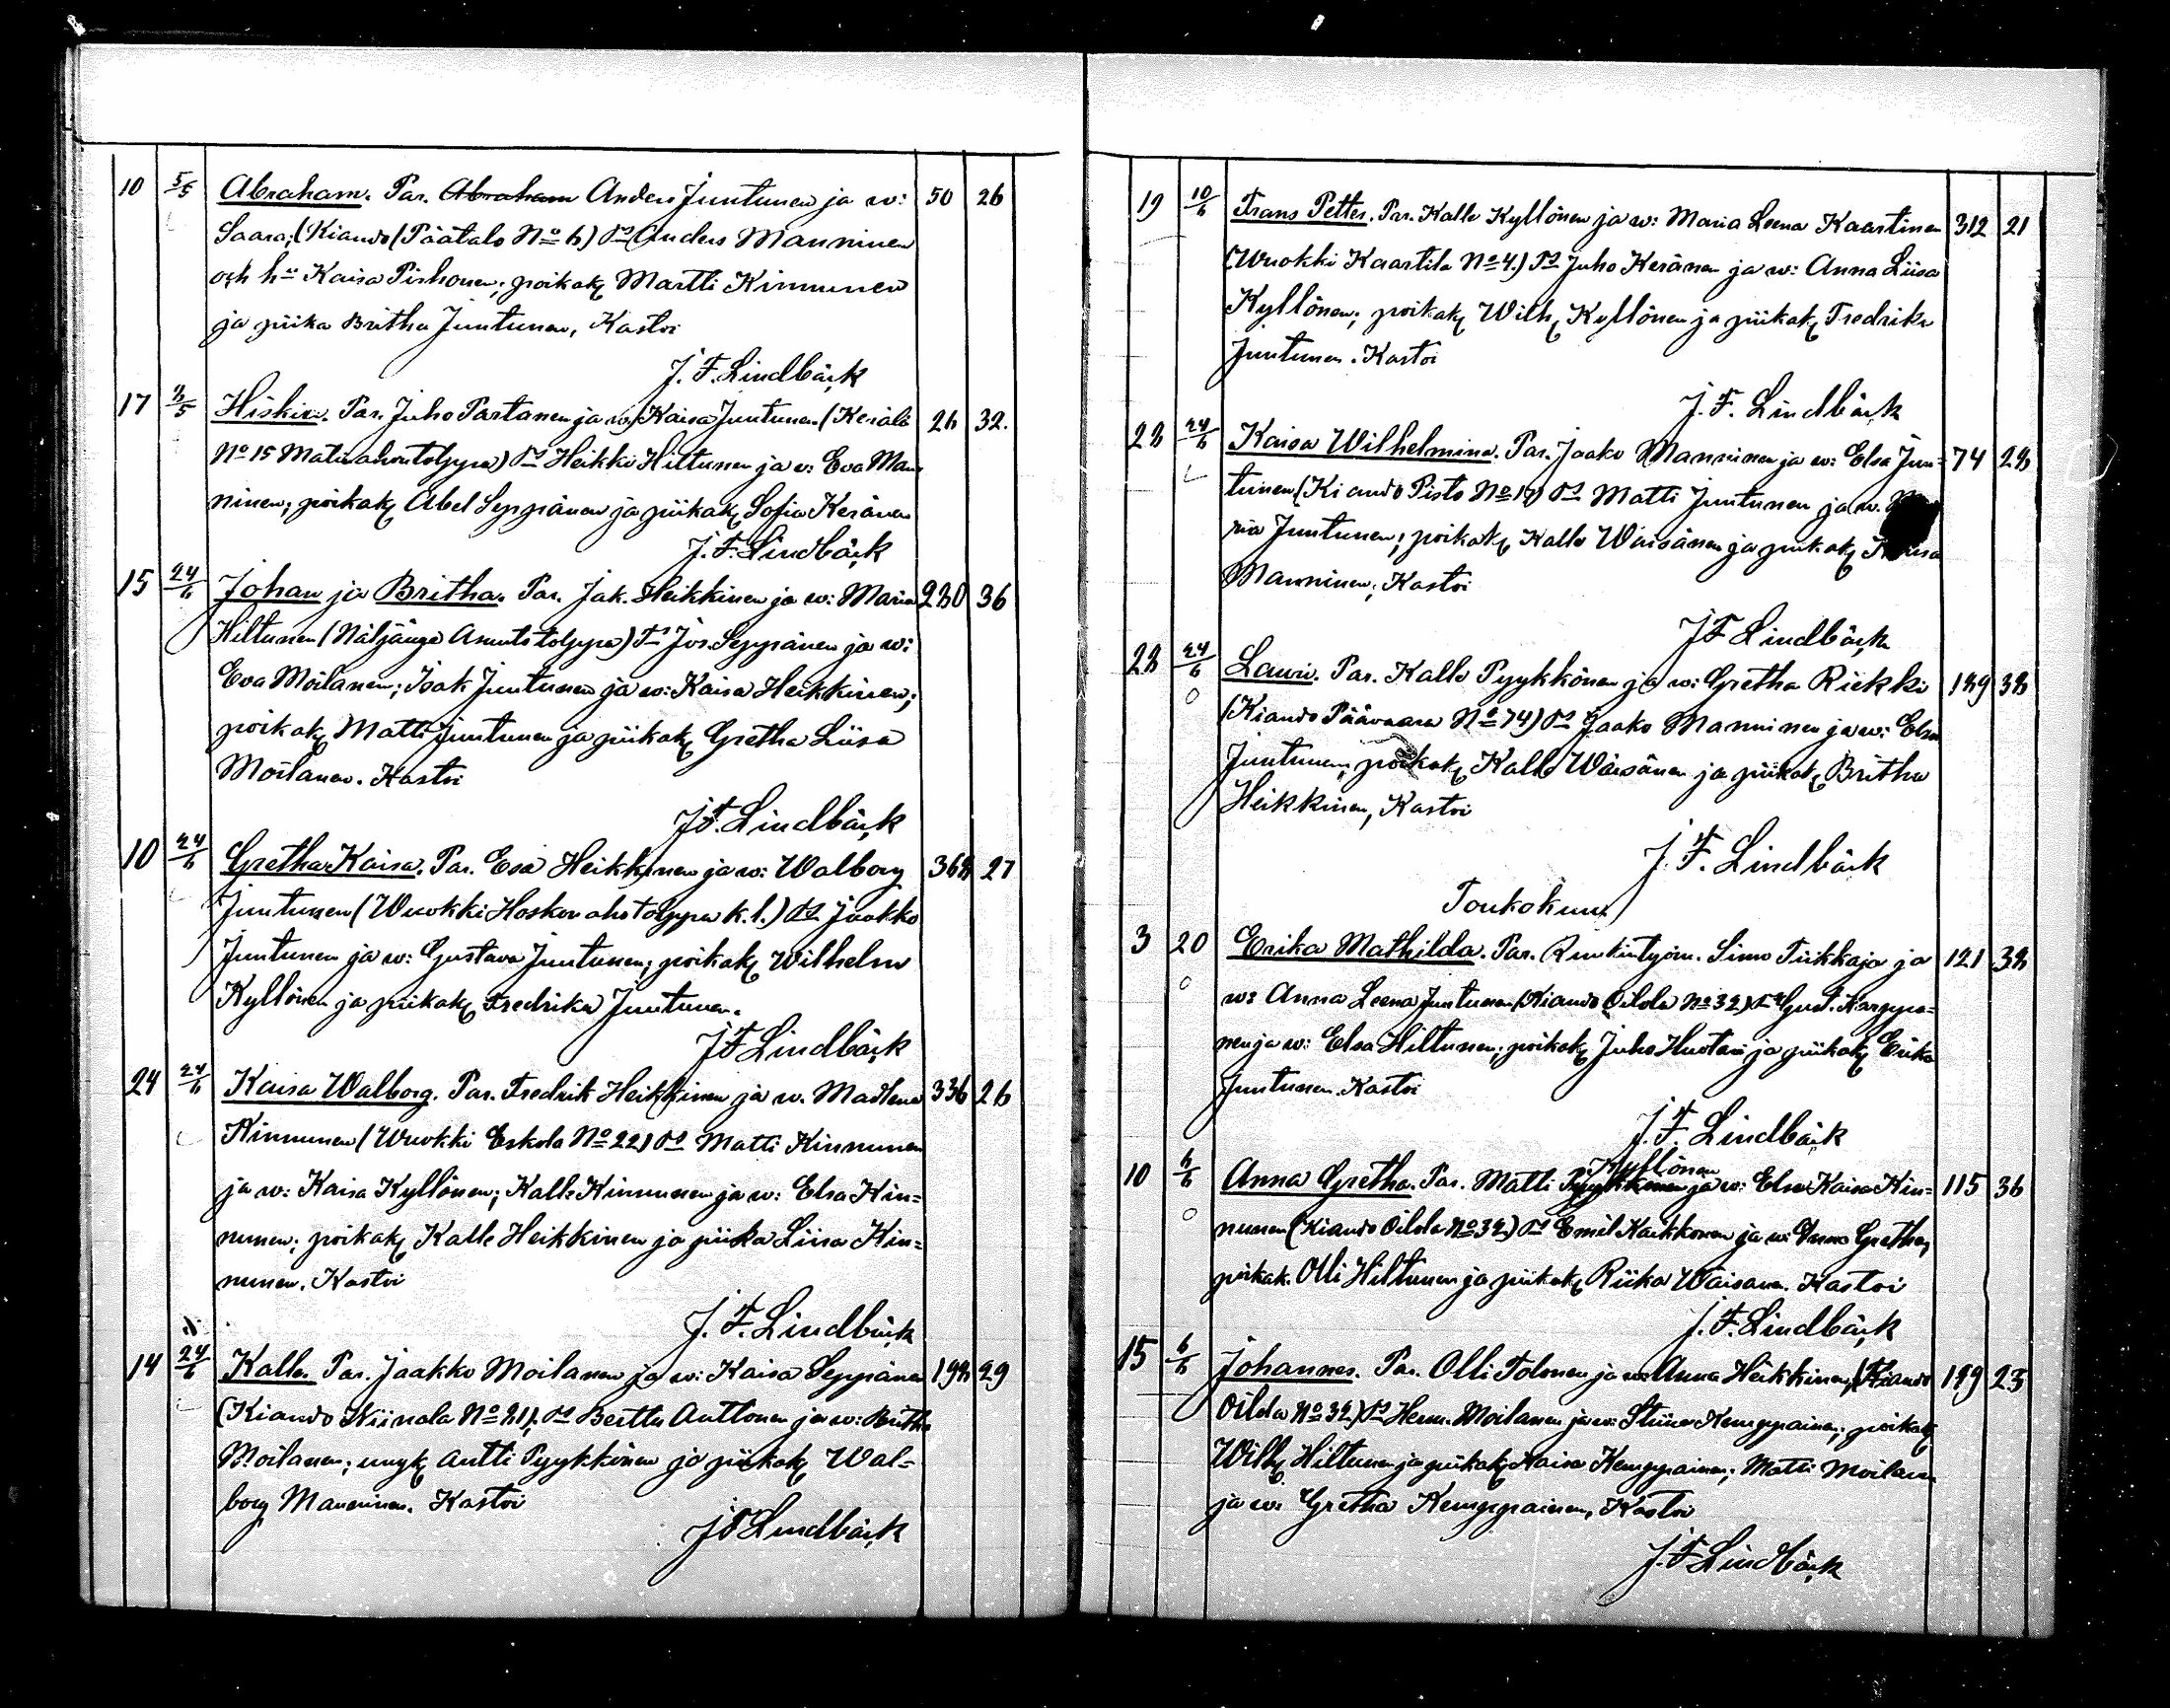 10 5/5 Abraham. Par. Abraham Anders Juntunen ja w: 50 26
Saara; (Kiando (Päätalo No 6) Ts Anders Manninen
och hu Kaisa Pirhonen; poikak Martti Kinnunen
ja piika Britha Juntunen, Kastoi
J. F. Lindbäck
17 9/5 Hiskia. Par. Juho Partanen ja w: Kaisa Juntunen (Kerälä 26 32.
No 15 Matinahontolppa) Ts Heikki Hiltunen ja w: Eva Man
ninen; poikak Abel Seppänen ja piikak Sofia Keränen
J. F. Lindbäck
15 24/6 Johan ja Britha. Par. Jak. Heikkinen ja w: Maria 230 36
Hiltunen (Näljänga Asuntotolppa) Ts Jos. Seppänen ja w:
Eva Moilanen; Isak Juntunen ja w: Kaisa Heikkinen;
poikak Matti Juntunen ja piikak Gretha Liisa
Moilanen. Kastoi
J F. Lindbäck
10 24/6 Gretha Kaisa. Par. Esa Heikkinen ja w: Walborg 368 27
Juntunen (Wuokki Hoskonaho tolppa k.l.) Ts Jaakko
Juntunen ja w: Gustava Juntunen; poikak Wilhelm
Kyllönen ja piikak Fredrika Juntunen.
J F Lindbäck
24 24/6 Kaisa Walborg. Par. Fredrik Heikkinen ja w. Madlena 336 26
Kinnunen (Wuokki Eskola No 22) Ts Matti Kinnunen
ja w: Kaisa Kyllönen; Kalle Kinnunen ja w: Elsa Kin=
nunen; poikak Kalle Heikkinen ja piika Liisa Kin=
nunen. Kastoi
J. F. Lindbäck
14 24/6 Kalle. Par. Jaakko Moilanen ja w: Kaisa Seppänen 198 29
(Kiando Niinola No 21). Ts Berttu Anttonen ja w: Britha
Moilanen; ungk Antti Pyykkönen ja piikak Wal=
borg Manninen. Kastoi
J F Lindbäck
19 10/6 Frans Petter. Par. Kalle Kyllönen ja w: Maria Leena Kaartinen 312 21
(Wuokki Kaartila No 4.) Ts Juho Keränen ja w: Anna Liisa
Kyllönen; poikak Wilh Kyllönen ja piikak Fredrika
Juntunen. Kastoi
J. F. Lindbäck
28 24/6 Kaisa Wilhelmina. Par. Jaako Manninen ja w: Elsa Jun= 74 28
tunen (Kiando Pisto No 17) Ts Matti Juntunen ja w. Ma
ria Juntunen; poikak Kalle Waisänen ja piikak Kaisa
Manninen; Kastoi
J F Lindbäck
28 24/6 Lauri. Par. Kalle Pyykkönen ja w: Gretha Riekki 189 38
(Kiando Päävaara No 74) Ts Jaako Manninen ja w: Elsa
Juntunen; poikak Kalle Waisänen ja piikak Britha
Heikkinen, Kastoi
J. F. Lindbäck
Toukokuu
3 20 Erika Mathilda. Par. Ruukintyöm. Simo Tiikkaja ja 121 38
w: Anna Leena Juntunen (Kiando Oilola No 32) Ts Gust. Karppi=
nen ja w: Elsa Hiltunen; poikak Juho Huotari ja piikak Erika
Juntunen. Kastoi
J. F. Lindbäck
Kyllönen
10 6/6 Anna Gretha. Par. Matti Pyykkönen ja w: Elsa Kaisa Kin= 115 36
nunen (Kiando Oilola No 32) Ts Emil Kaikkonen ja w: Anna Gretha;
poikak. Olli Hiltunen ja piikak Riika Waisänen. Kastoi
J. F. Lindbäck
15 6/6 Johannes. Par. Olli Tolonen ja w: Anna Heikkinen, (Kiando 189 23
Oilola No 32) Ts Herm. Moilanen ja w: Stiina Kemppainen; poikak
Wilh Hiltunen ja piikak Kaisa Kemppainen; Matti Moilanen
ja w: Gretha Kemppainen, Kastoi
J. F Lindbäck